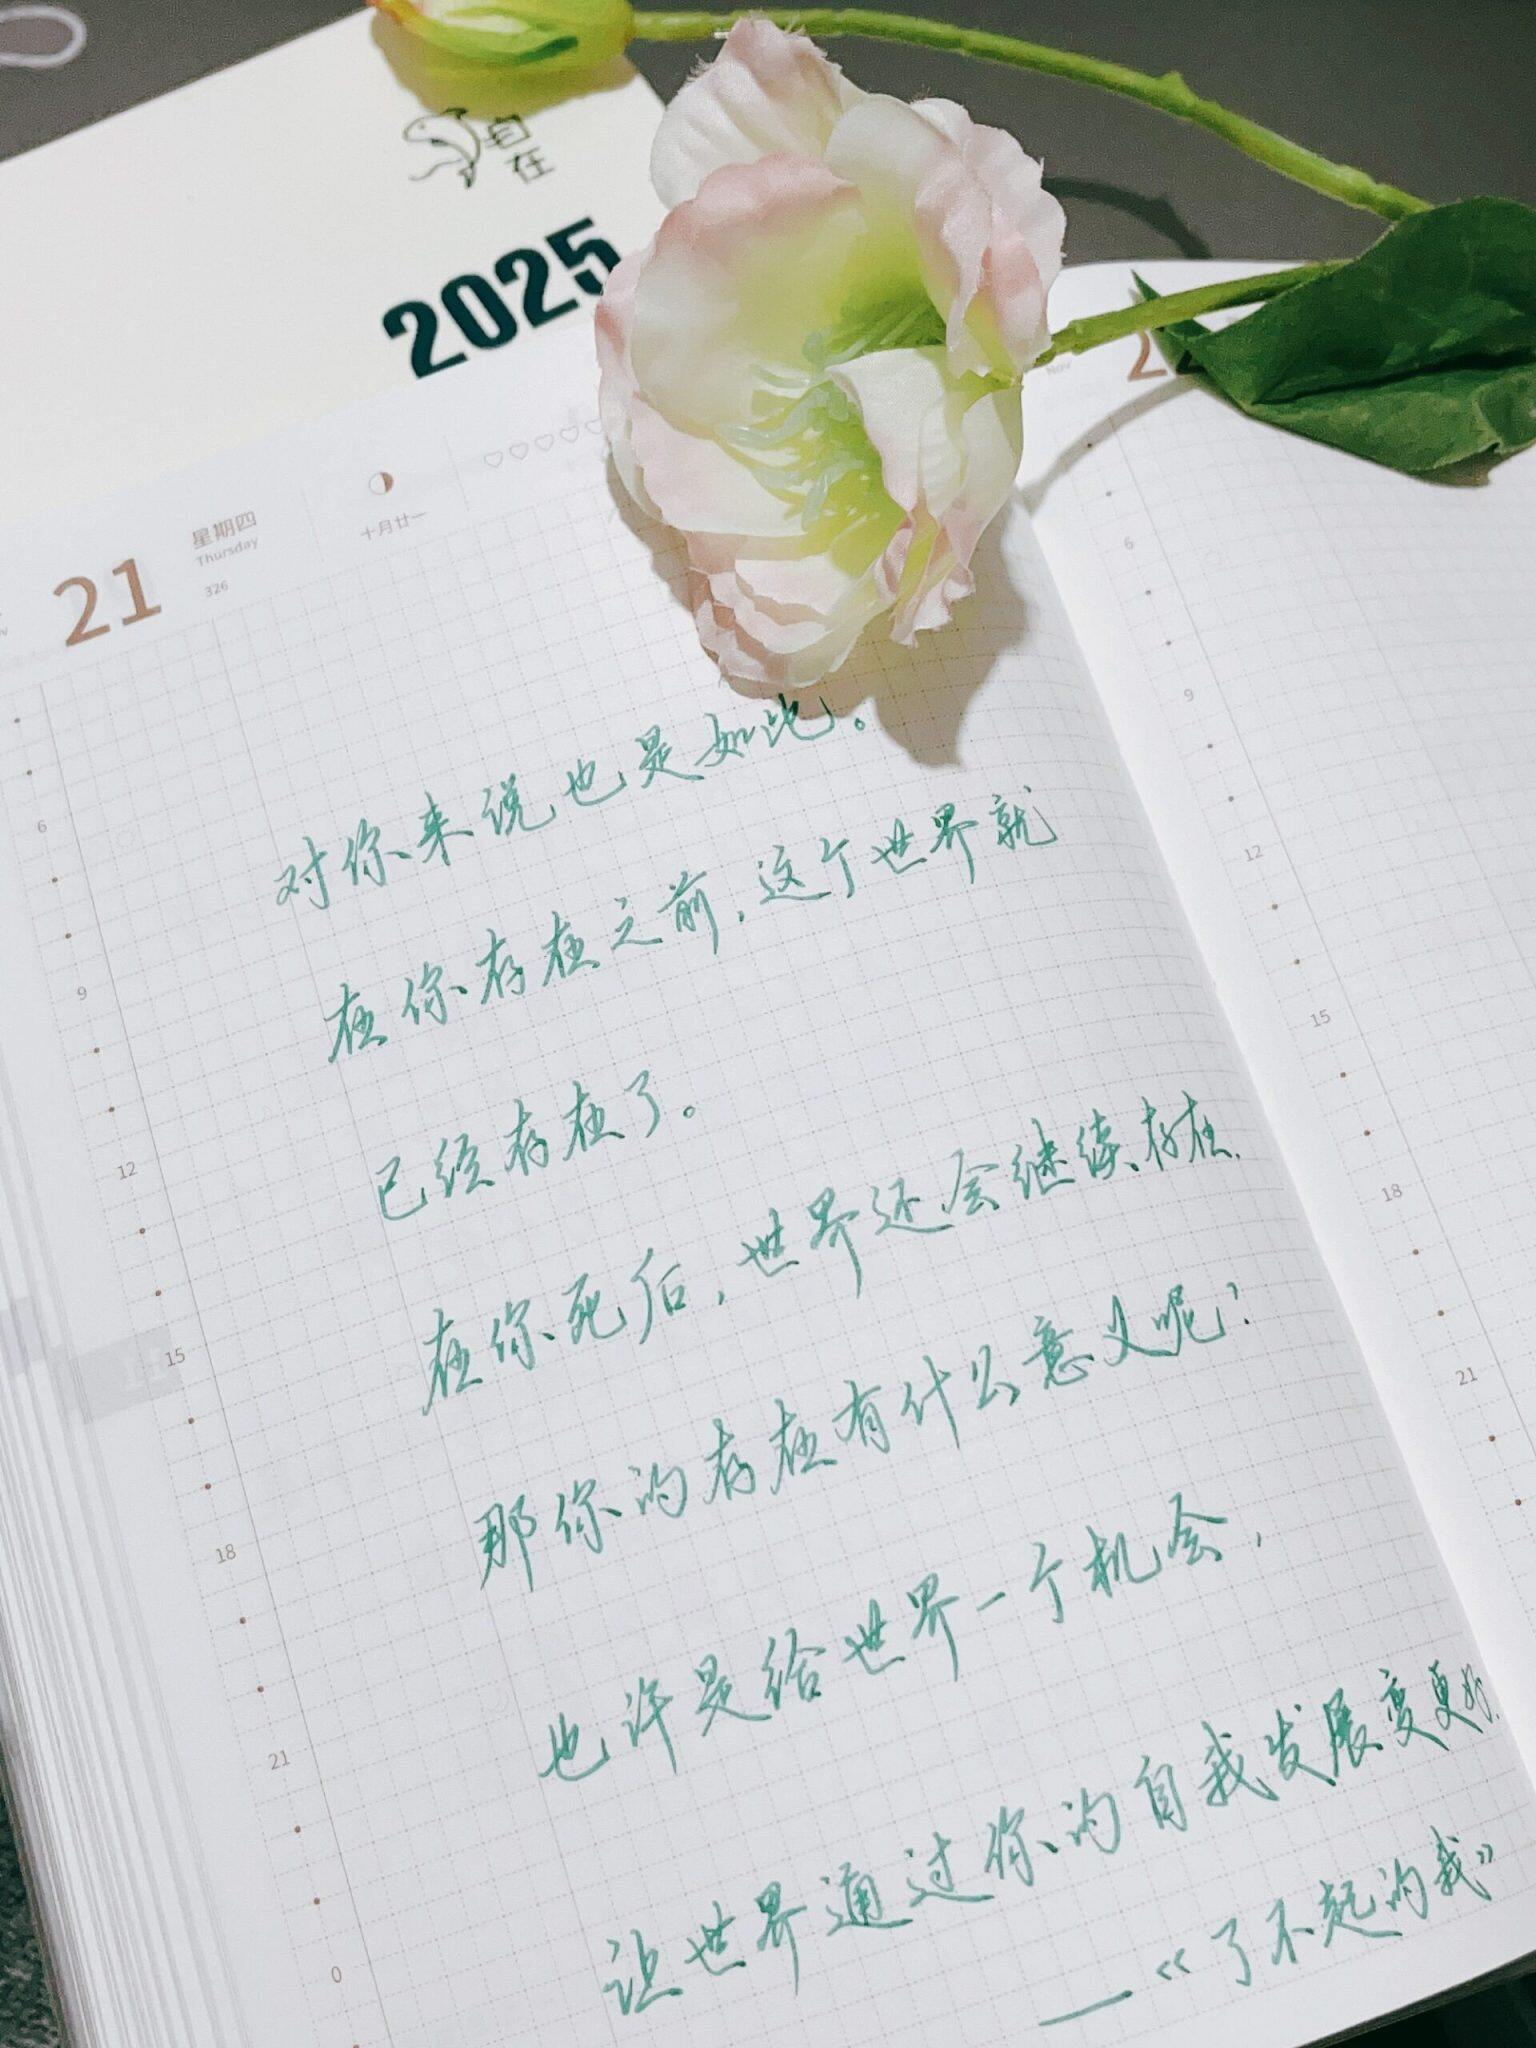 自在
2025
21
星期四
Thursday
326
十月廿一
Nov
对你来说也是如此。
在你存在之前,这个世界就
已经存在了。
在你死后,世界还会继续存在.
那你的存在有什么意义呢?
也许是给世界一个机会,
让世界通过你的自我发展变更好.
——《了不起的我》
6
9
12
15
18
21
0
6
9
12
15
18
21